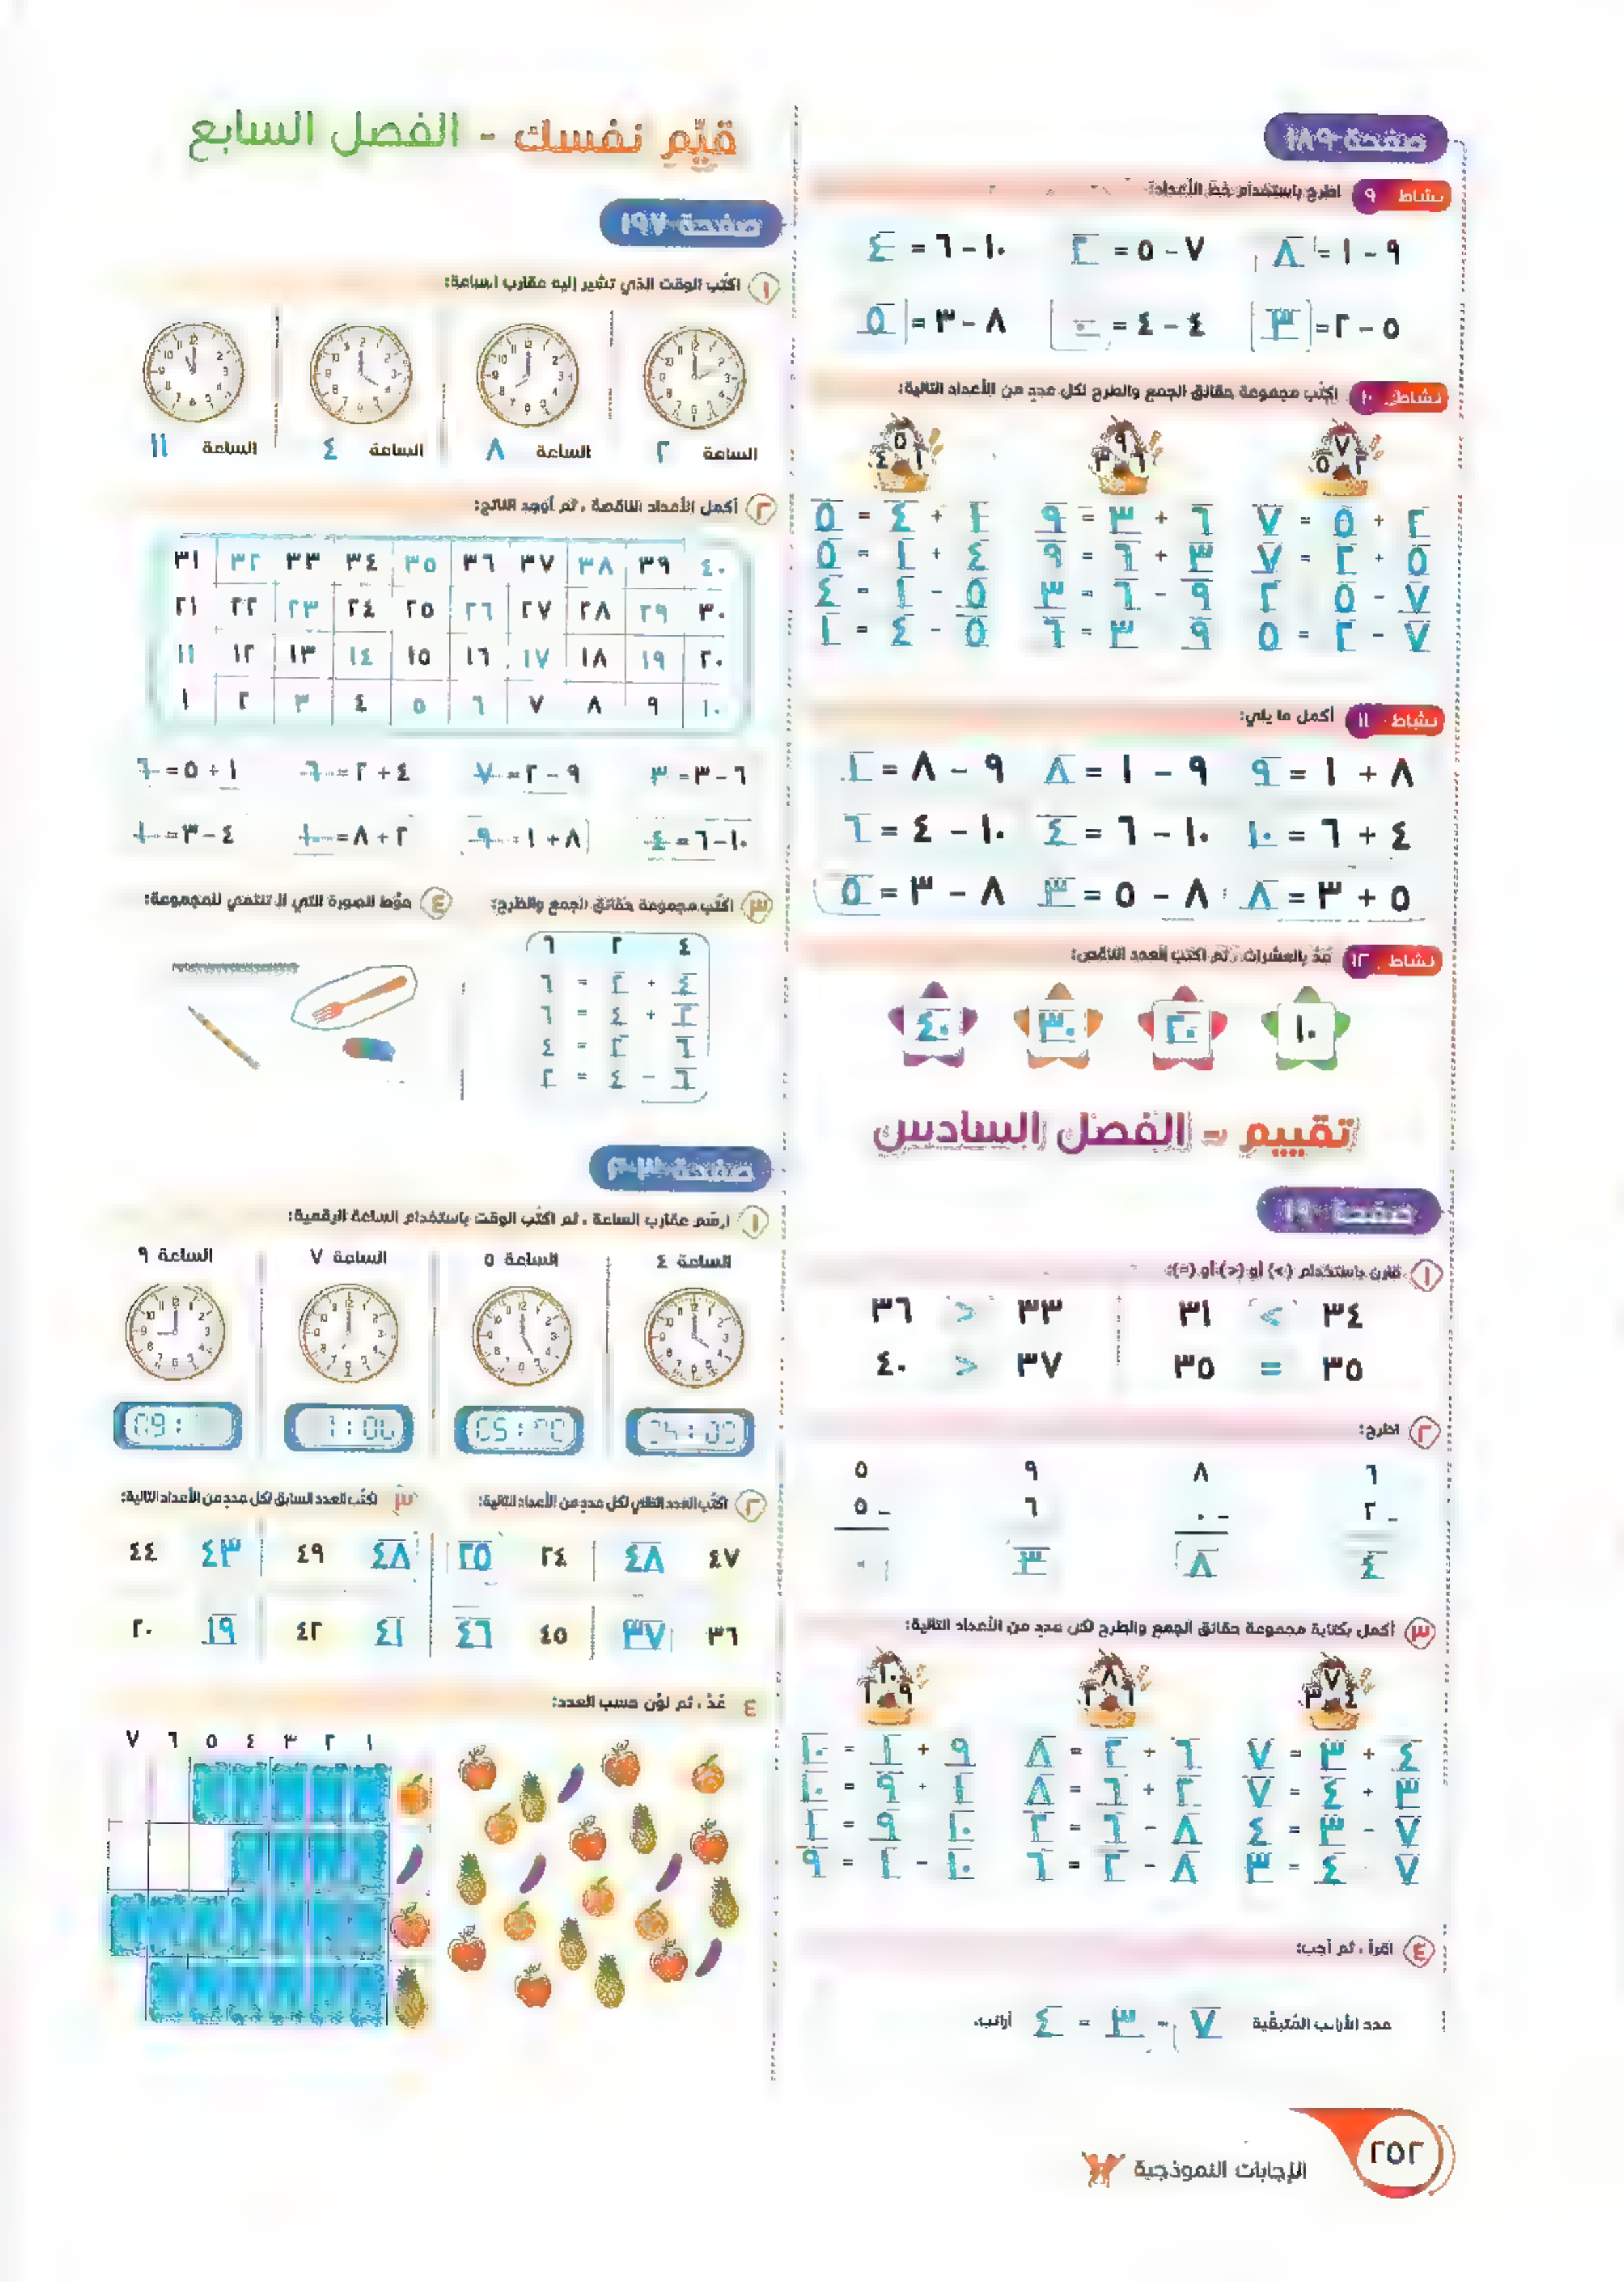 صفحة ١٨٩
نشاط ٩ اطرح باستخدام خط الأعداد:
٩ - ١ = ٨ ٧ - ٥ = ٢ ١٠ - ٦ = ٤
٥ - ٢ = ٣ ٤ - ٤ = ٠ ٨ - ٣ = ٥
نشاط ١٠ اكتب مجموعة حقائق الجمع والطرح لكل عدد من الأعداد التالية:
٧ ٩ ٥
٥ ٢ ٣ ٦ ٤ ١
٢ + ٥ = ٧ ٦ + ٣ = ٩ ١ + ٤ = ٥
٥ + ٢ = ٧ ٣ + ٦ = ٩ ٤ + ١ = ٥
٧ - ٥ ٢ ٩ - ٦ = ٣ ٥ - ١ = ٤
٧ - ٢ = ٥ ٩ ٣ = ٦ ٥ - ٤ = ١
نشاط ١١ أكمل ما يلي:
٨ + ١ = ٩ ٩ - ١ = ٨ ٩ - ٨ = ١
٤ + ٦ = ١٠ ١٠ - ٦ = ٤ ١٠ - ٤ = ٦
٥ + ٣ = ٨ ٨ - ٥ = ٣ ٨ - ٣ = ٥
نشاط ١٢ عُدّ بالعشرات ، ثم اكتب العدد الناقص:
١٠ ٢٠ ٣٠ ٤٠
تقييم - الفصل السادس
صفحة ١٩٠
١ قارن باستخدام (>) أو (<) أو (=):
٣٤ > ٣١ ٣٣ < ٣٦
٣٥ = ٣٥ ٣٧ < ٤٠
٢ اطرح:
٦ ٨ ٩ ٥
٢ - ٠ - ٦ ٥ -
٤ ٨ ٣
٣ أكمل بكتابة مجموعة حقائق الجمع والطرح لكل عدد من الأعداد التالية:
٧ ٨ ١٠
٣ ٤ ٢ ٦ ١ ٩
٤ + ٣ = ٧ ٦ + ٢ = ٨ ٩ + ١ = ١٠
٣ + ٤ = ٧ ٢ + ٦ = ٨ ١ + ٩ = ١٠
٧ - ٣ = ٤ ٨ - ٦ = ٢ ١٠ ٩ = ١
٧ ٤ = ٣ ٨ - ٢ = ٦ ١٠ - ١ = ٩
٤ اقرأ ، ثم أجب:
عدد الأرانب المتبقية ٧ - ٣ = ٤ أرانب.
قيّم نفسك - الفصل السابع
صفحة ١٩٧
١ اكتب الوقت الذي تشير إليه عقارب الساعة:
الساعة ٢ الساعة ٨ الساعة ٤ الساعة ١١
٢ أكمل الأعداد الناقصة ، ثم أوجد الناتج:
٣١ ٣٢ ٣٣ ٣٤ ٣٥ ٣٦ ٣٧ ٣٨ ٣٩ ٤٠
٢١ ٢٢ ٢٣ ٢٤ ٢٥ ٢٦ ٢٧ ٢٨ ٢٩ ٣٠
١١ ١٢ ١٣ ١٤ ١٥ ١٦ ١٧ ١٨ ١٩ ٢٠
١ ٢ ٣ ٤ ٥ ٦ ٧ ٨ ٩ ١٠
٦ - ٣ = ٣ ٩ - ٢ = ٧ ٤ + ٢ = ٦ ١ + ٥ = ٦
١٠ - ٦ = ٤ ٨ + ١ = ٩ ٢ + ٨ = ١٠ ٤ - ٣ = ١
٣ اكتب مجموعة حقائق الجمع والطرح:
٤ ٢ ٦
٤ + ٢ = ٦
٢ + ٤ = ٦
٦ ٢ = ٤
٦ - ٤ = ٢
٤ حوّط الصورة التي لا تنتمي للمجموعة:
١ ارسم عقارب الساعة ، ثم اكتب الوقت باستخدام الساعة الرقمية:
الساعة ٤ الساعة ٥ الساعة ٧ الساعة ٩
٢ اكتب العدد التالي لكل عدد من الأعداد التالية:
٤٧ ٤٨ ٢٤ ٢٥
٣٦ ٣٧ ٤٥ ٤٦
٣ اكتب العدد السابق لكل عدد من الأعداد التالية:
٤٨ ٤٩ ٤٣ ٤٤
٤١ ٤٢ ١٩ ٢٠
٤ عُدّ ، ثم لوّن حسب العدد:
١ ٢ ٣ ٤ ٥ ٦ ٧
٢٥٢
الإجابات النموذجية